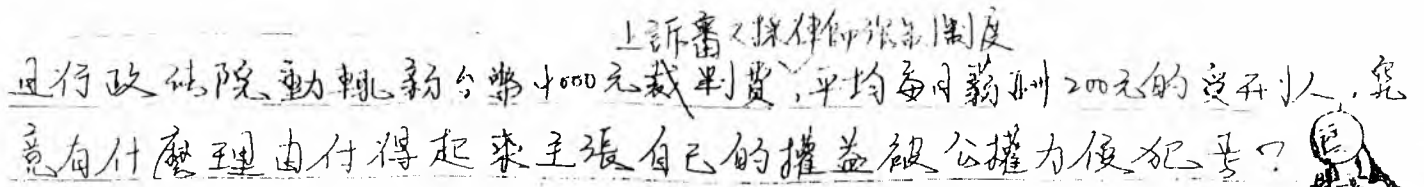 上訴審又採律師強制制度
且行政法院動輒新台幣4000元裁判費,平均每月薪酬200元的受刑人,究
竟有什麼理由付得起來主張自己的權益被公權力侵犯呢?